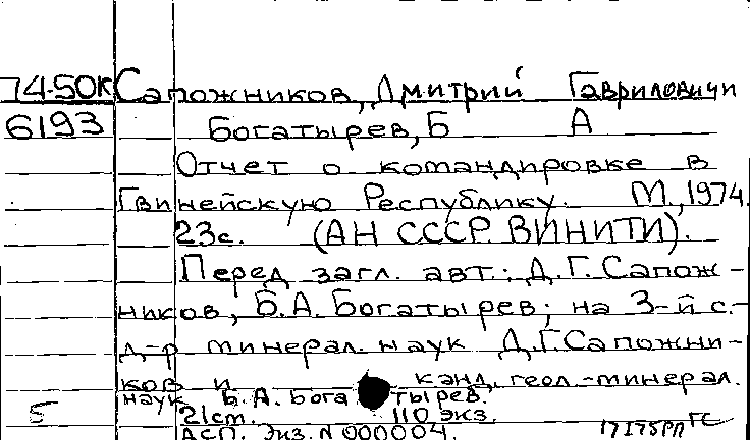 74-50К Сапожников, Дмитрий Гаврилович и
6193 Богатырев, Б А
Отчет о командировке в
Гвинейскую Республику. М., 1974.
23с. (АН СССР. ВИНИТИ).
Перед загл. авт.: Д.Г. Сапож-
ников, Б.А. Богатырев; на 3-й с.-
д-р минерал. наук Д.Г. Сапожни-
ков и канд. геол.-минерал.
наук Б.А. Богатырев.
5 21см. 110 экз.
ДСП. Экз. N 000004.